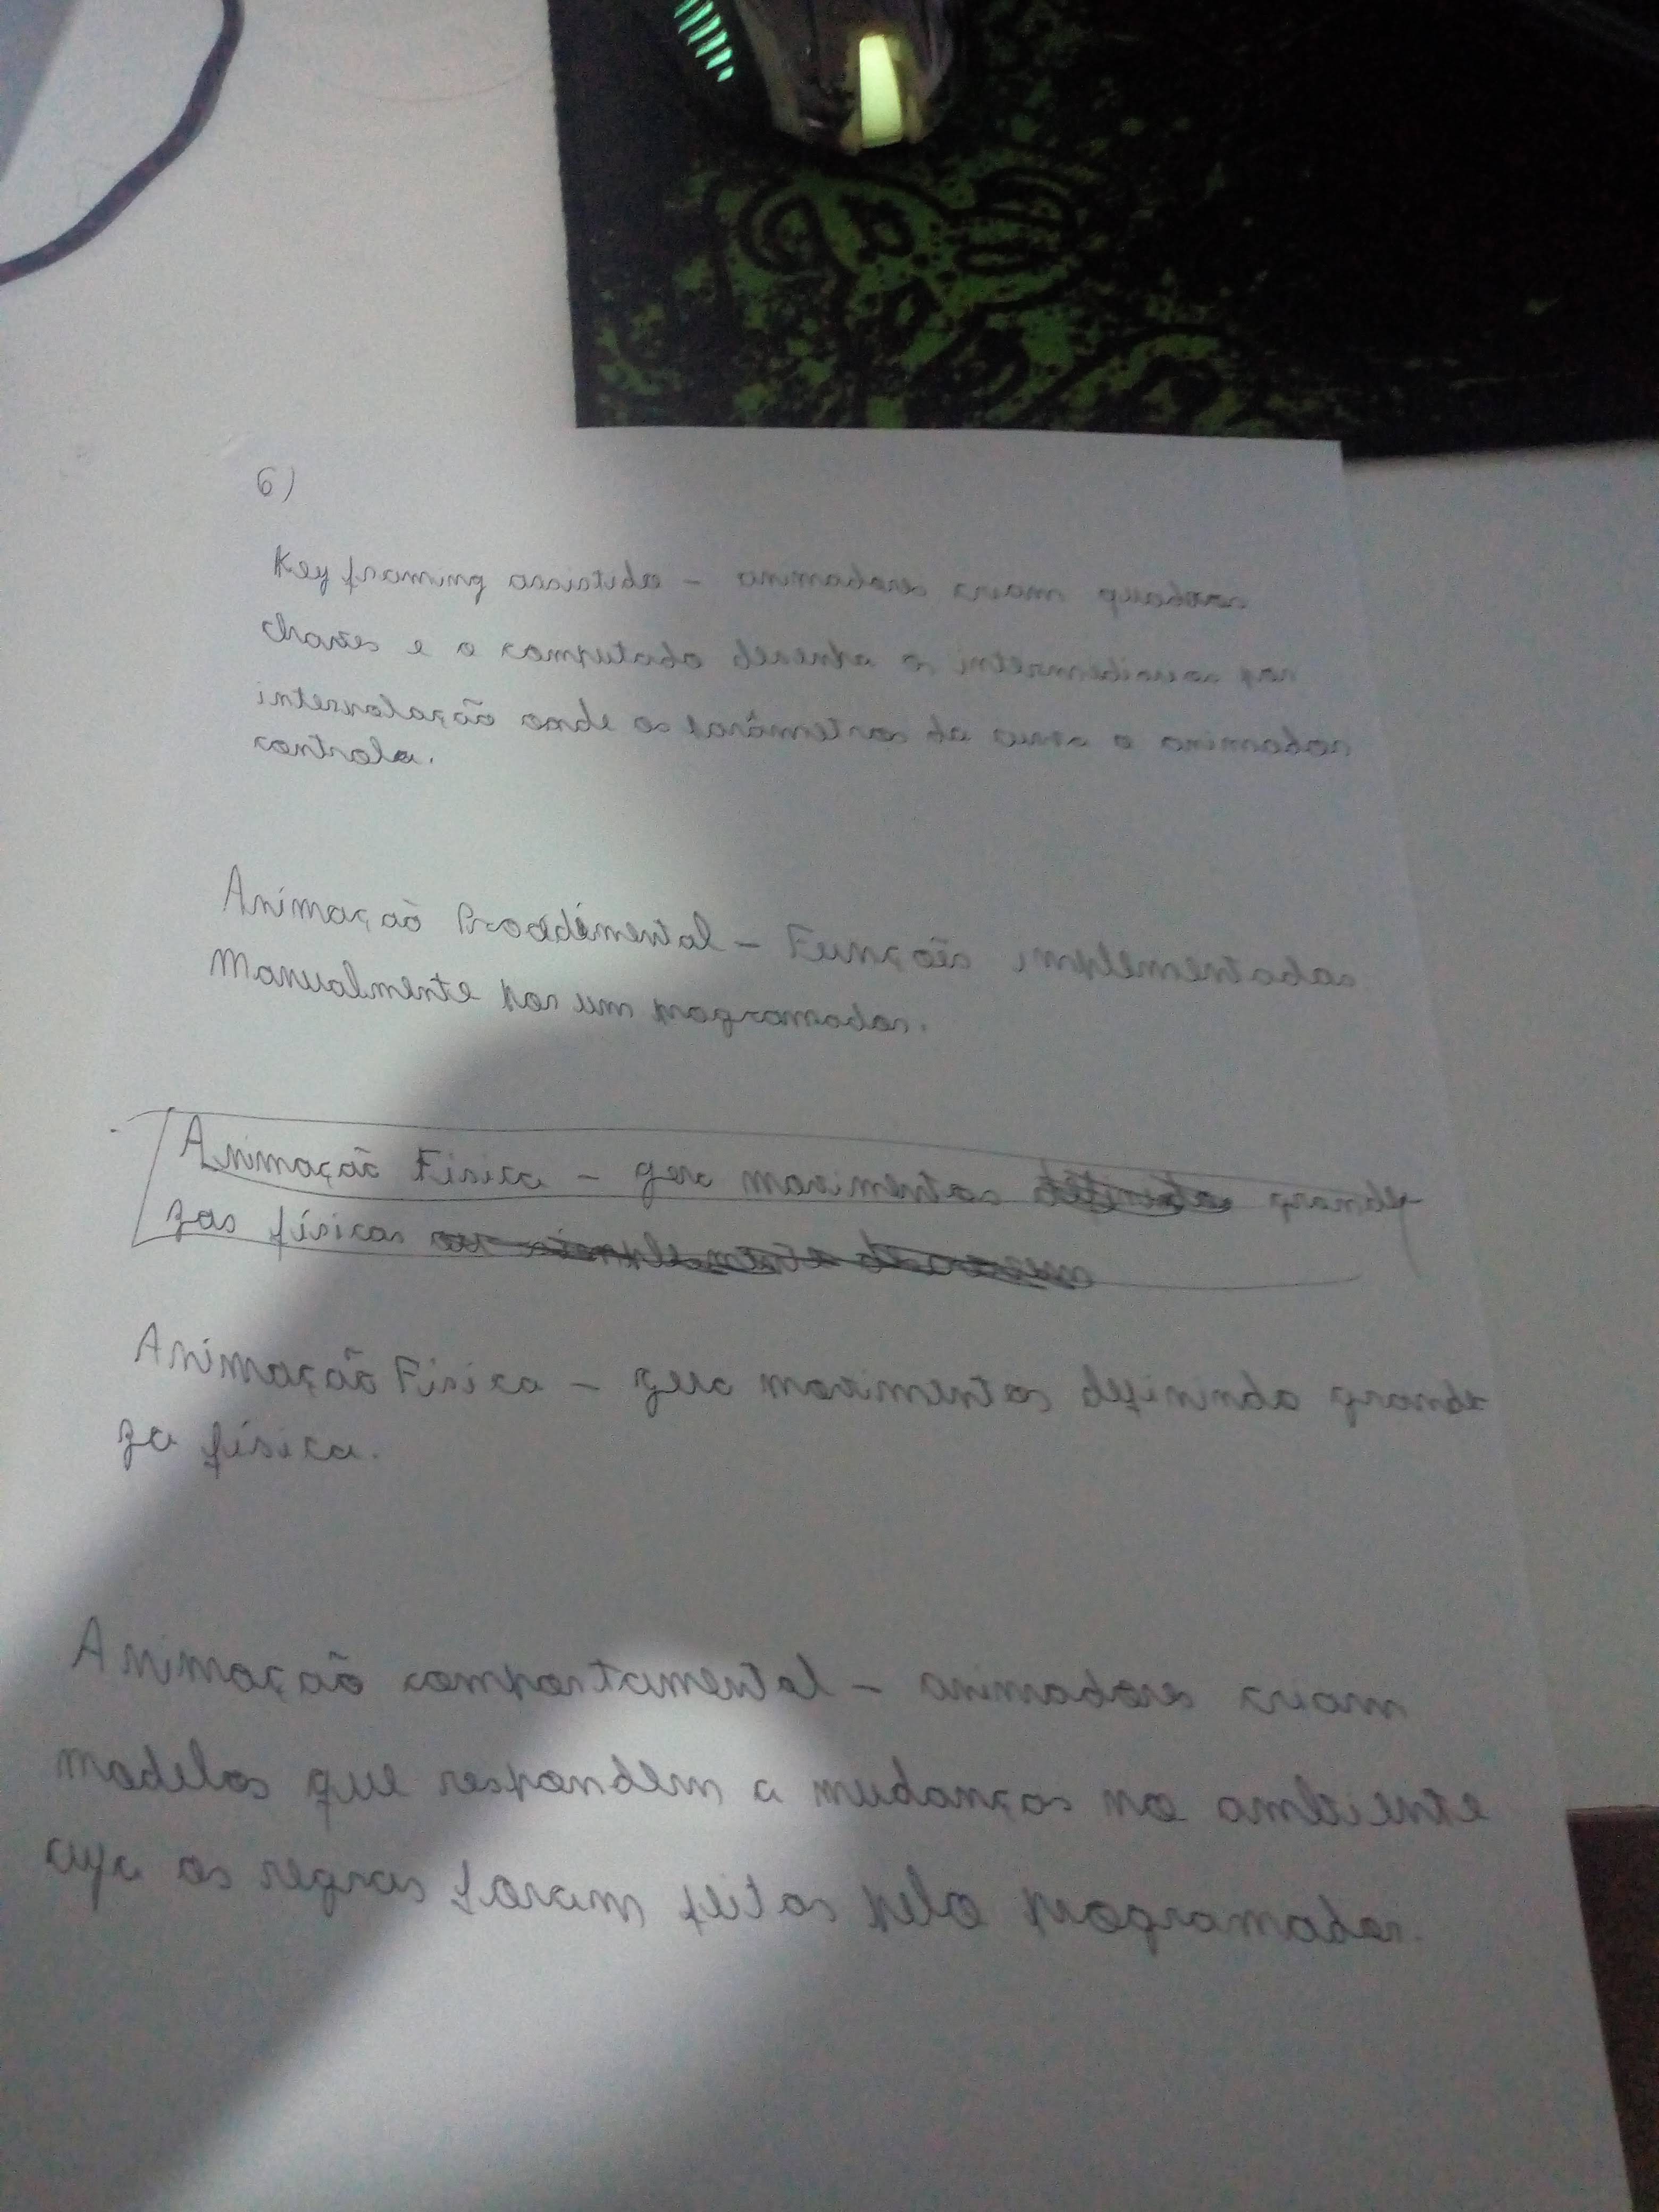 6)
Key framing assistida - animadores criam quadros
chaves e o computador desenha os intermediários por
interpolação onde os parâmetros da curva o animador
controla.
Animação Procedimental - Funções implementadas
Manualmente por um programador.
Animação Física - gera movimentos grande-
zas físicas
Animação Física - gera movimentos definindo grande-
za física.
Animação comportamental - animadores criam
modelos que respondem a mudanças no ambiente
cuja as regras foram feitas pelo programador.